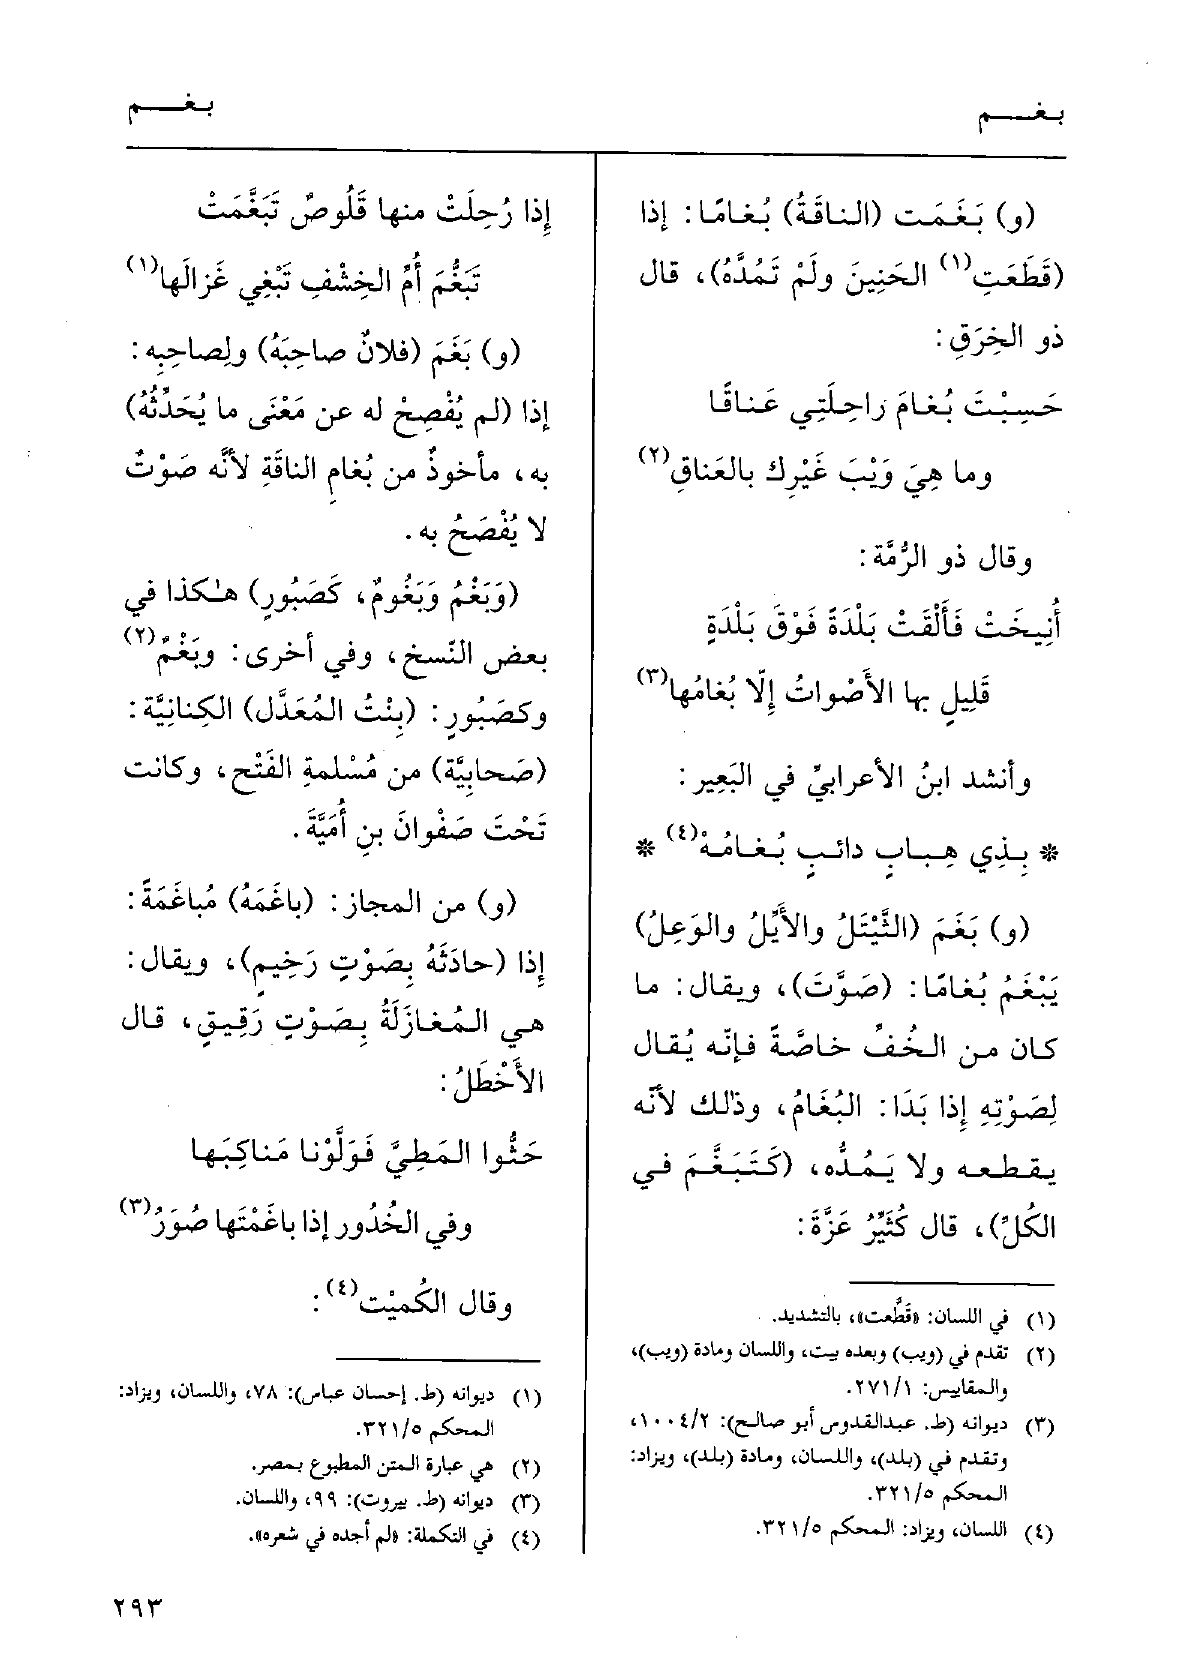 بغـــم
بغـــم
(و) بَغَمَت (الناقَةُ) بُغامًا: إذا
(قَطَعَتِ(١) الحَنِينَ ولَمْ تَمُدَّهُ)، قال
ذو الخِرَقِ:
حَسِبْتَ بُغامَ راحِلَتِي عَناقًا
وما هِيَ وَيْبَ غَيْرِك بالعَناقِ(٢)
وقال ذو الرُّمَّة:
أُنِيخَتْ فَأَلْقَتْ بَلْدَةً فَوْقَ بَلْدَةٍ
قَلِيلٍ بها الأَصْواتُ إلّا بُغامُها(٣)
وأنشد ابنُ الأعرابيِّ في البَعِير:
* بِذِي هِبابٍ دائبٍ بُغامُهْ(٤) *
(و) بَغَمَ (الثَّيْتَلُ والأَيِّلُ والوَعِلُ)
يَبْغَمُ بُغامًا: (صَوَّتَ)، ويقال: ما
كان من الخُفِّ خاصَّةً فإنّه يُقال
لِصَوْتِهِ إذا بَدَا: البُغَامُ، وذٰلك لأنّه
يقطعه ولا يَمُدُّه، (كَتَبَغَّمَ في
الكُلِّ)، قال كُثَيِّرُ عَزَّةَ:
(١) في اللسان: «قَطَّعت»، بالتشديد.
(٢) تقدم في (ويب) وبعده بيت، واللسان ومادة (ويب)،
والمقاييس: ٢٧١/١.
(٣) ديوانه (ط. عبدالقدوس أبو صالح): ١٠٠٤/٢،
وتقدم في (بلد)، واللسان، ومادة (بلد)، ويزاد:
المحكم ٣٢١/٥.
(٤) اللسان، ويزاد: المحكم ٣٢١/٥.
إِذا رُحِلَتْ منها قَلُوصٌ تَبَغَّمَتْ
تَبَغُّمَ أُمِّ الخِشْفِ تَبْغِي غَزالَها(١)
(و) بَغَمَ (فلانٌ صاحِبَهُ) ولِصاحِبِه:
إذا (لم يُفْصِحْ له عن مَعْنَى ما يُحَدِّثُهُ)
به، مأخوذٌ من بُغامِ الناقَةِ لأنَّه صَوْتٌ
لا يُفْصَحُ به.
(وَبَغْمُ وَبَغُومٌ، كَصَبُورٍ) هٰكذا في
بعض النّسخ، وفي أخرى: وبَغْمٌ(٢)
وكصَبُورٍ: (بِنْتُ المُعَذَّل) الكِنانِيَّة:
(صَحابِيَّة) من مُسْلمةِ الفَتْح، وكانت
تَحْتَ صَفْوانَ بنِ أُمَيَّةَ.
(و) من المجاز: (باغَمَهُ) مُباغَمَةً:
إذا (حادَثَهُ بِصَوْتٍ رَخِيمٍ)، ويقال:
هي المُغازَلَةُ بِصَوْتٍ رَقِيقٍ، قال
الأَخْطَلُ:
حَثُّوا المَطِيَّ فَوَلَّوْنا مَناكِبَها
وفي الخُدُورِ إذا باغَمْتَها صُوَرُ(٣)
وقال الكُمَيْت(٤):
(١) ديوانه (ط. إحسان عباس): ٧٨، واللسان، ويزاد:
المحكم ٣٢١/٥.
(٢) هي عبارة المتن المطبوع بمصر.
(٣) ديوانه (ط. بيروت): ٩٩، واللسان.
(٤) في التكملة: «لم أجده في شعره».
٢٩٣